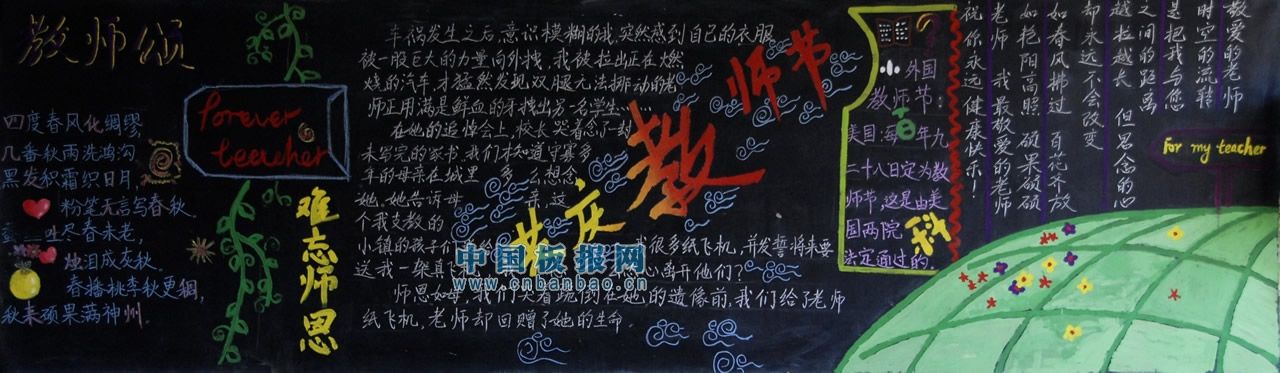 教师颂
四度春风化绸缪,
几番秋雨洗鸿沟,
黑发积霜织日月,
粉笔无言写春秋,
吐尽春未老,
烛泪成灰秋.
春播桃李秋更稠,
秋来硕果满神州.
forever
teacher
难忘师恩
车祸发生之后,意识模糊的我,突然感到自己的衣服
被一股巨大的力量向外拽,我被拉出正在燃
烧的汽车,才猛然发现双腿无法挪动的老
师正用满是鲜血的牙拽出另一名学生......
在她的追悼会上,校长哭着念了一封
未写完的家书,我们才知道守寡多
年的母亲在城里 多么想念
她,她告诉母 亲,这
个我支教的
小镇的孩子们 给 我很多纸飞机,并发誓将来要
送我一架真 心离开他们?
师思如母,我们哭着 倒在她的遗像前,我们给了老师
纸飞机,老师却回赠了她的生命.
共庆
教师节
中国板报网
www.cnbanbao.cn
小百科
外国
教师节:
美国:每年九
二十八日定为教
师节,这是由美
国两院
法定通过的.
敬爱的老师
时空的流转
是把我与您
之间的距离
越拉越长 但思念的心
却永远不会改变
如春风拂过 百花齐放
如艳阳高照 硕果硕硕
老师 我最敬爱的老师
祝你永远健康快乐!
For my teacher